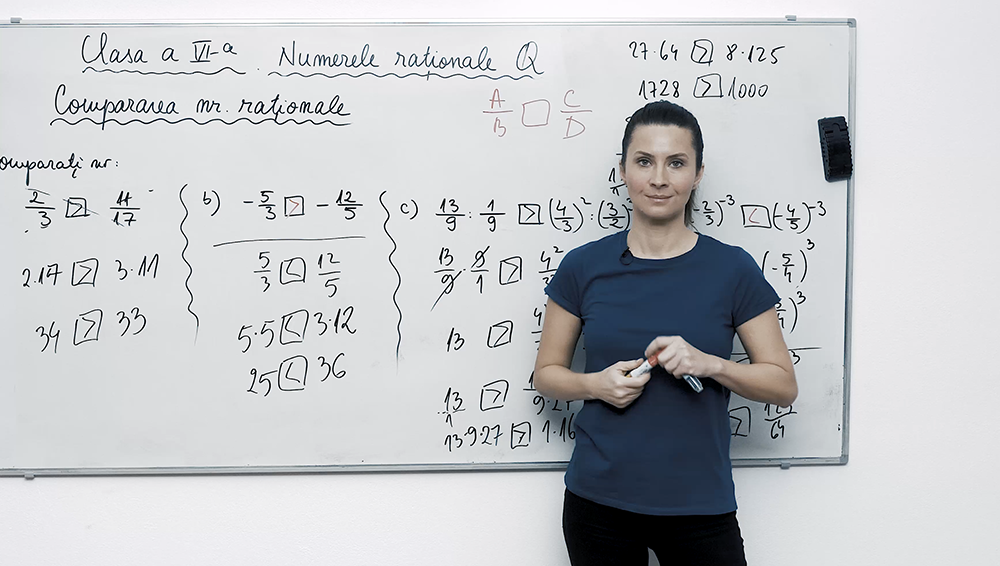 Clasa a VI-a. Numerele raționale Q
Compararea nr. raționale
27·64 > 8·125
1728 > 1000
A/B □ C/D
omparați nr:
2/3 > 11/17
2·17 > 3·11
34 > 33
b) -5/3 > -12/5
5/3 < 12/5
5·5 < 3·12
25 < 36
c) 13/9 : 1/9 > (4/3)² : (3/2)
13/9 · 9/1 > 4²
13 >
13/1 >
13·9·27 > 1·16
-2/3)⁻³ < (-4/5)⁻³
(-5/4)³
)³
>
64